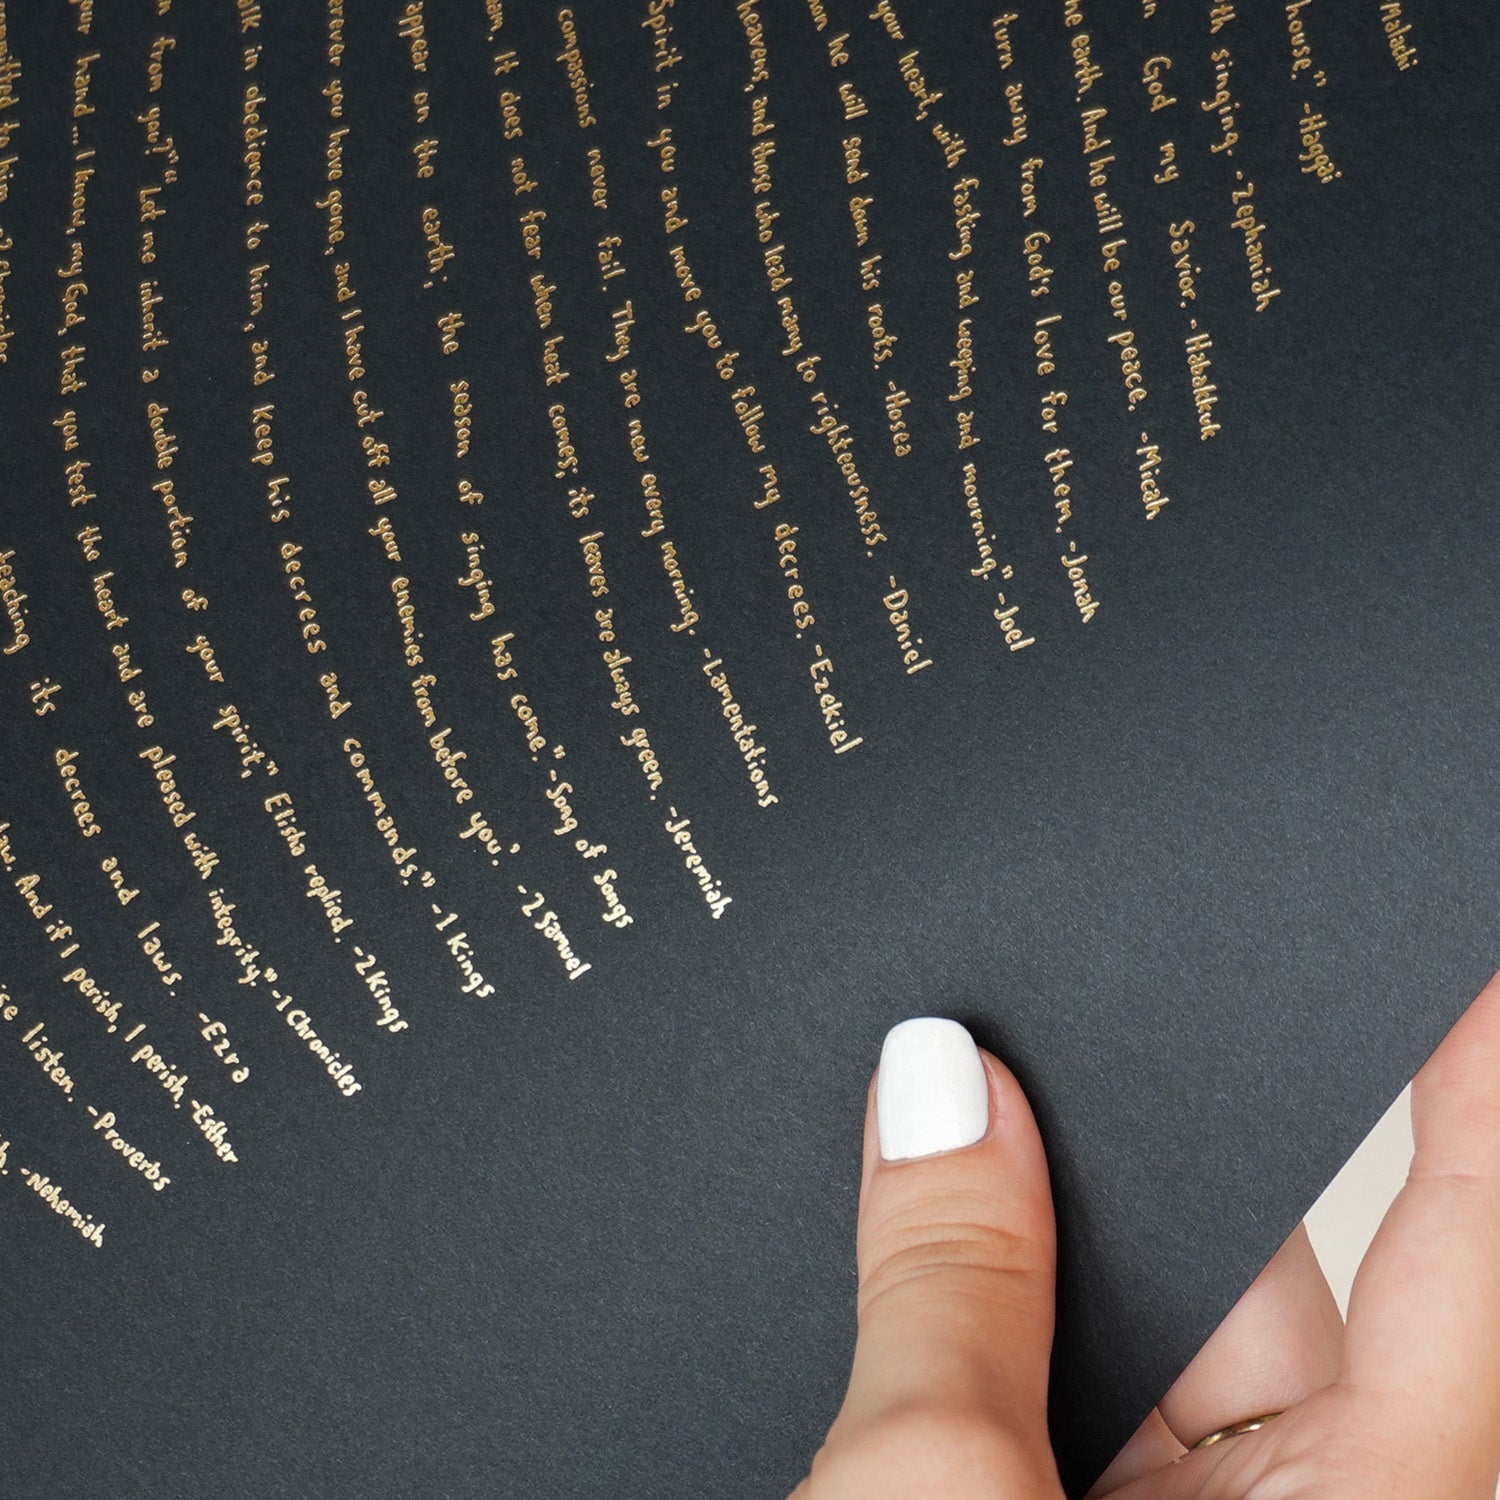 Malachi
house." -Haggai
singing. -Zephaniah
God my Savior. -Habakkuk
he earth. And he will be our peace. -Micah
turn away from God's love for them. -Jonah
your heart, with fasting and weeping and mourning." -Joel
he will send down his roots. -Hosea
heavens, and those who lead many to righteousness. -Daniel
Spirit in you and move you to follow my decrees. -Ezekiel
compassions never fail. They are new every morning. -Lamentations
It does not fear when heat comes; its leaves are always green. -Jeremiah
appear on the earth; the season of singing has come." -Song of Songs
you have gone, and I have cut off all your enemies from before you.' -2 Samuel
in obedience to him, and keep his decrees and commands." -1 Kings
from you?" "Let me inherit a double portion of your spirit," Elisha replied. -2 Kings
hand... I know, my God, that you test the heart and are pleased with integrity." -1 Chronicles
teaching its decrees and laws. -Ezra
And if I perish, I perish. -Esther
listen. -Proverbs
-Nehemiah